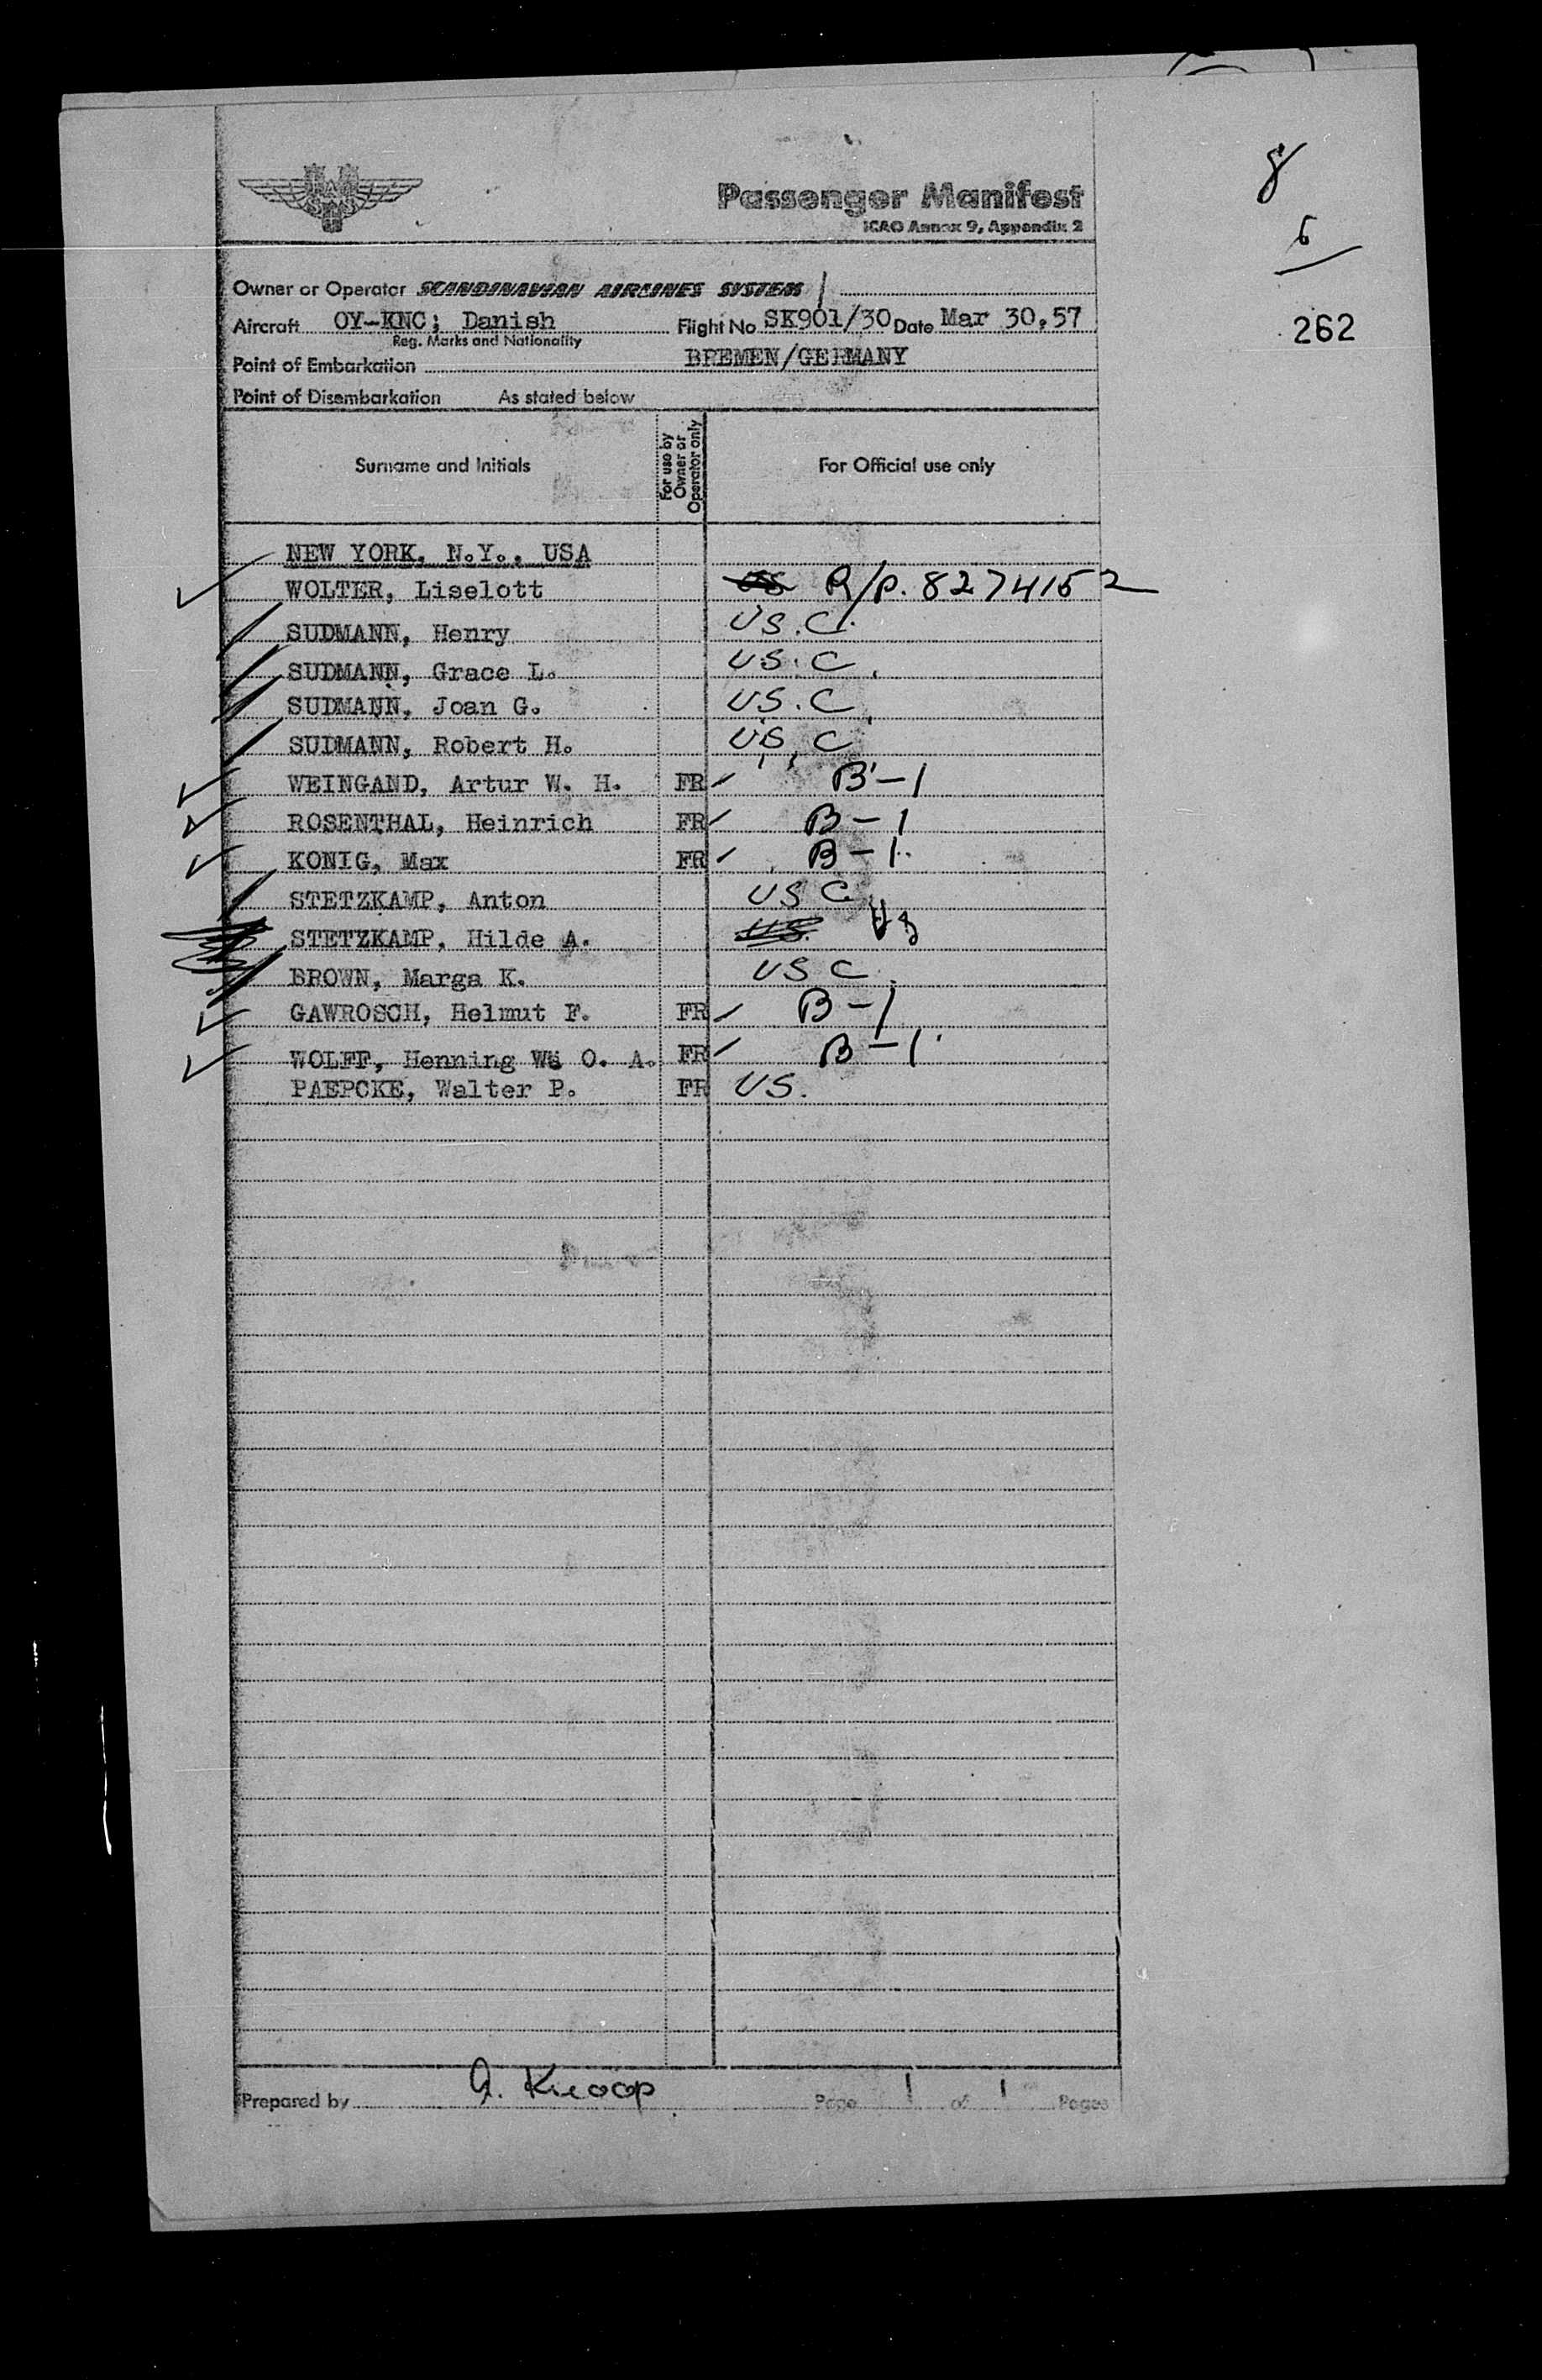 8
6
262
SAS
Passenger Manifest
ICAO Annex 9, Appendix 2
Owner or Operator SCANDINAVIAN AIRLINES SYSTEM
Aircraft OY-KNC; Danish Flight No SK901/30 Date Mar 30,57
Reg. Marks and Nationality
Point of Embarkation BREMEN/GERMANY
Point of Disembarkation As stated below
Surname and Initials For use by Owner or Operator only For Official use only
NEW YORK, N.Y., USA
WOLTER, Liselott R/P. 8274152
SUDMANN, Henry US.C.
SUDMANN, Grace L. US.C.
SUDMANN, Joan G. US.C.
SUDMANN, Robert H. US,C
WEINGAND, Artur W. H. FR ✓ B-1
ROSENTHAL, Heinrich FR ✓ B-1
KONIG, Max FR ✓ B-1
STETZKAMP, Anton USC
STETZKAMP, Hilde A. US.
BROWN, Marga K. USC
GAWROSCH, Helmut F. FR ✓ B-1
WOLFF, Henning W. O. A. FR ✓ B-1
PAEPCKE, Walter P. FR US.
Prepared by Page 1 of 1 Pages